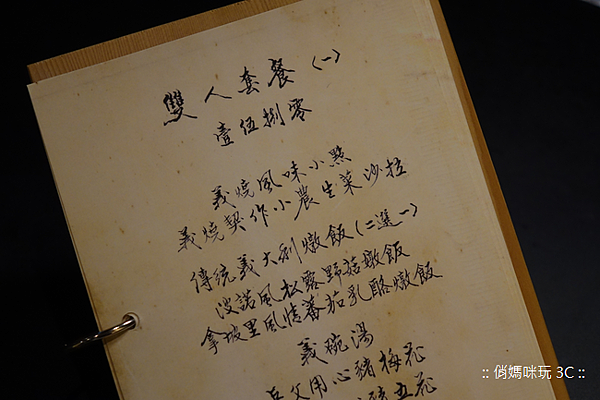 雙人套餐〈一〉
壹伍捌零
義燒風味小點
義燒契作小農生菜沙拉
傳統義大利燉飯(二選一)
波諾風松露野菇燉飯
拿坡里風情蕃茄乳酪燉飯
義碗湯
用心豬梅花
五花
:: 俏媽咪玩 3C ::